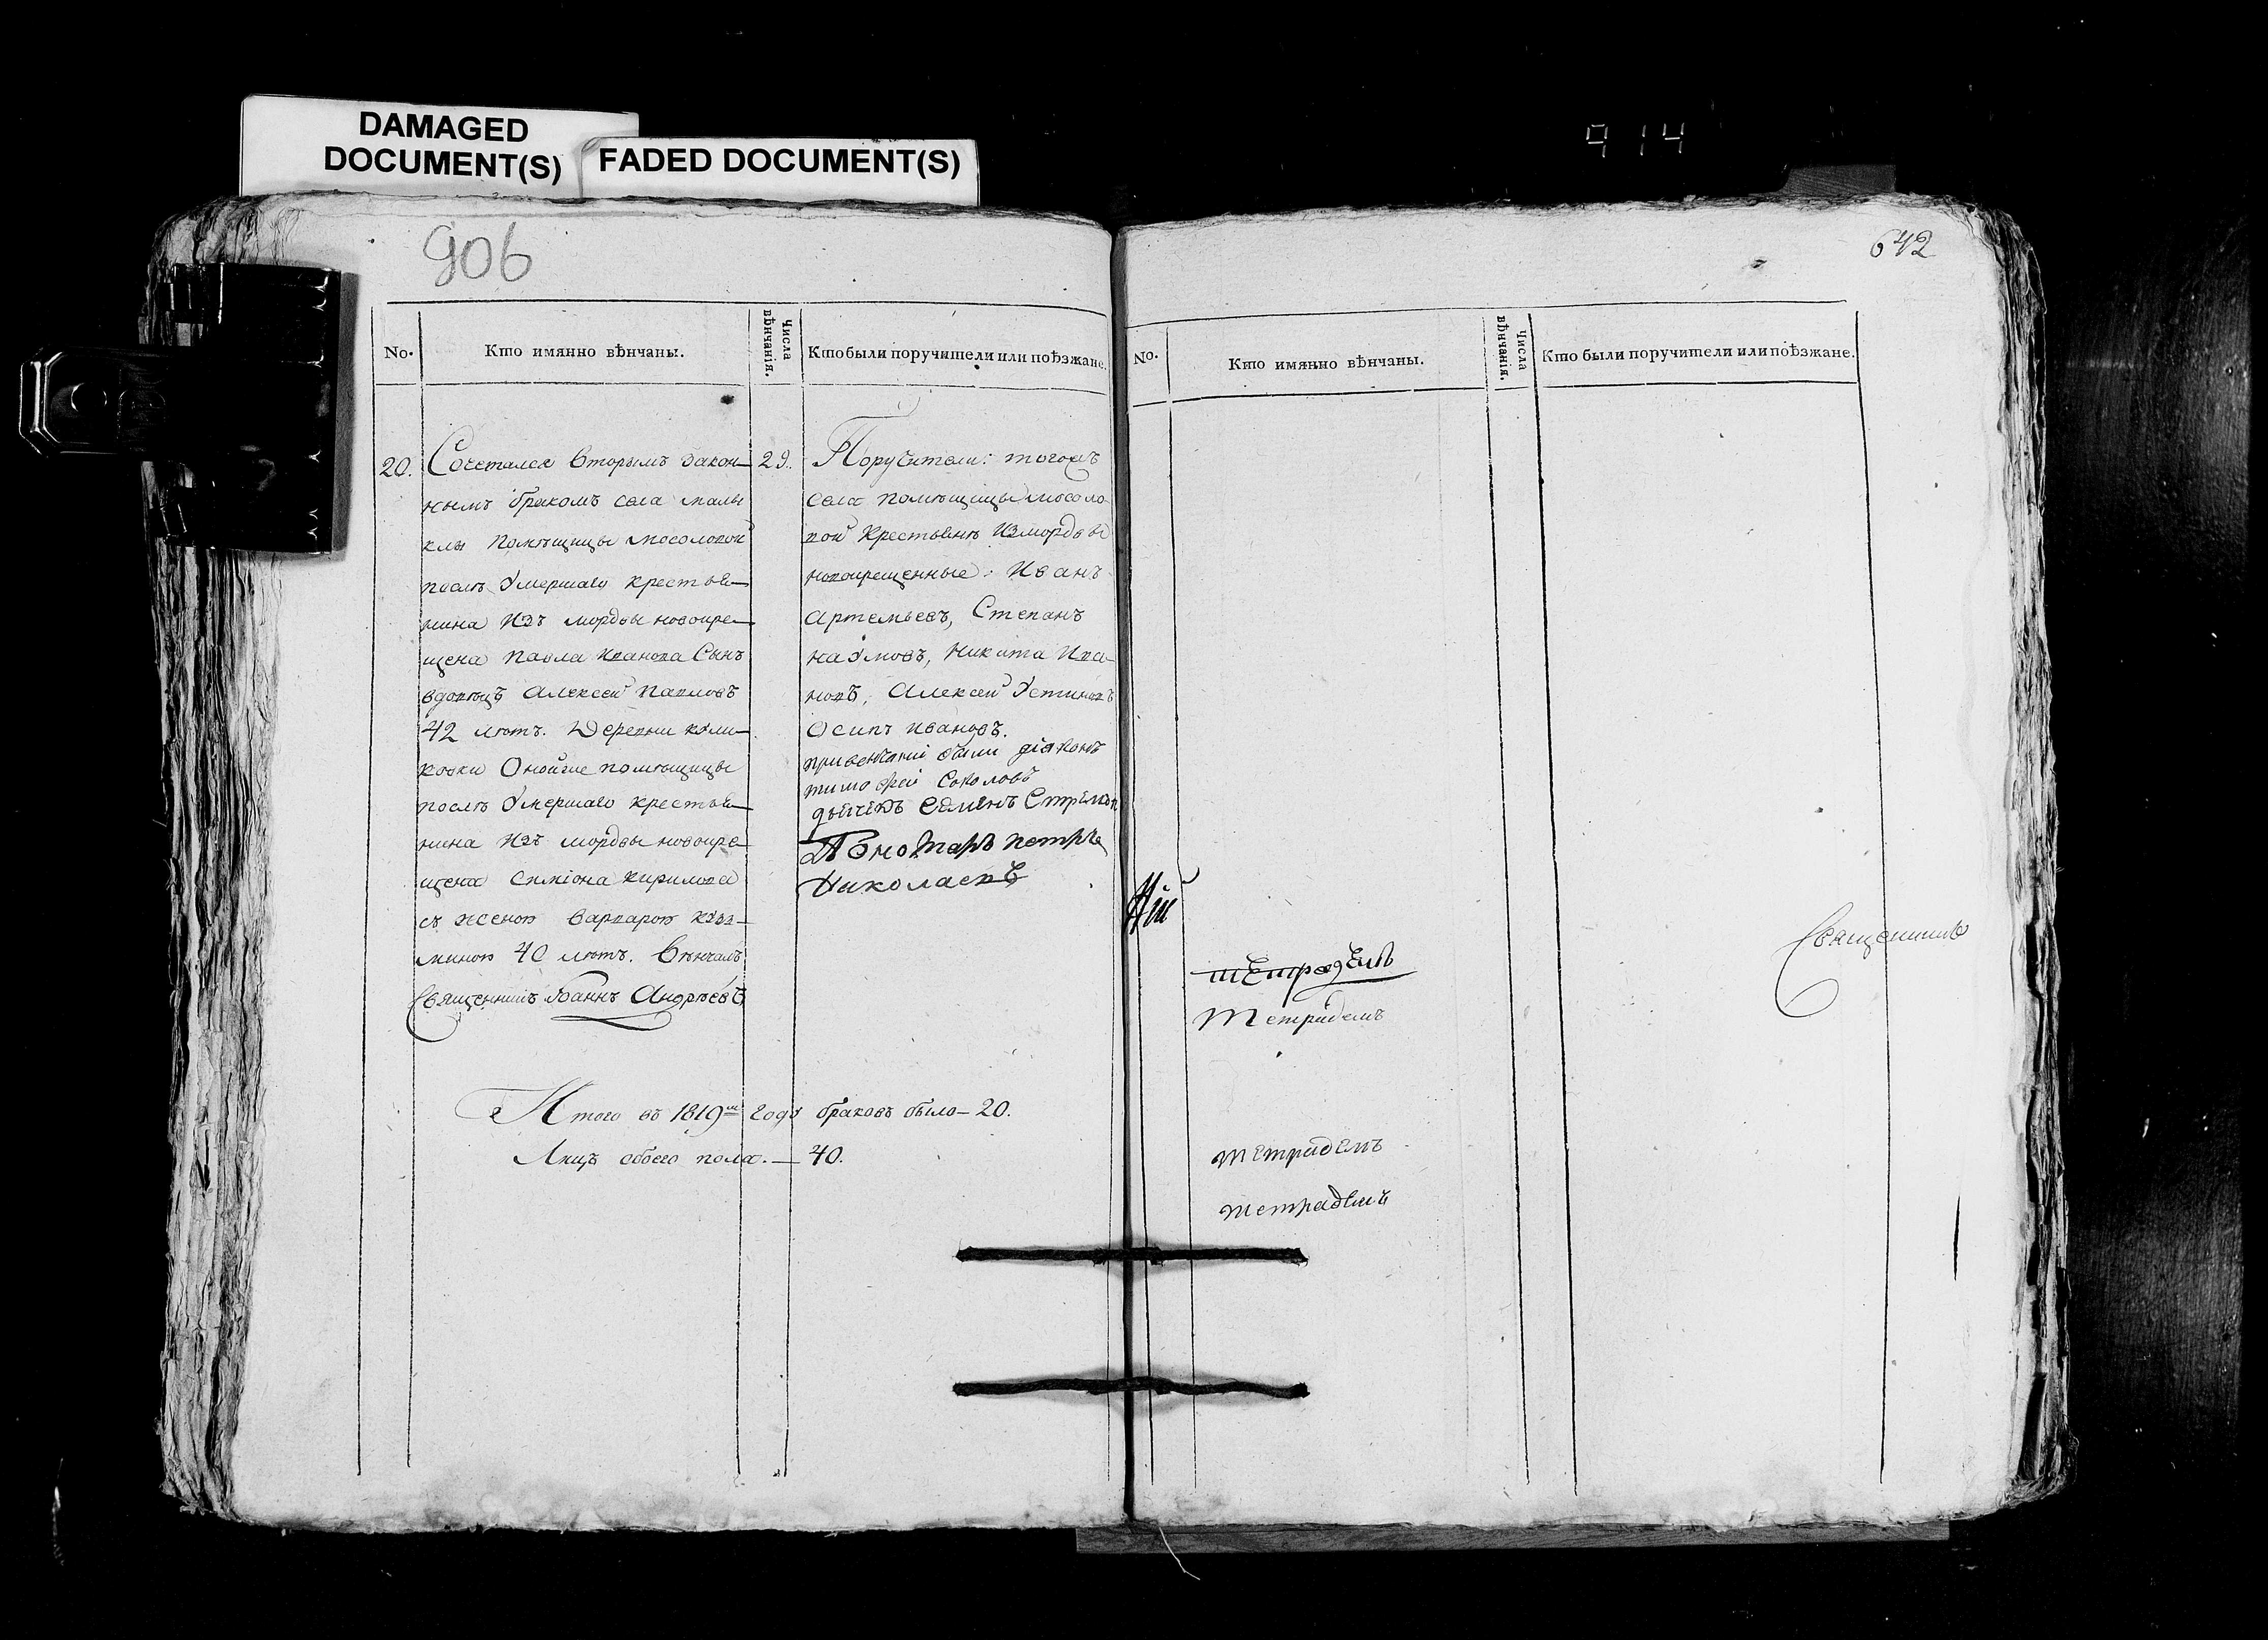 DAMAGED
DOCUMENT(S)
FADED DOCUMENT(S)
914
906
No.
Кто имянно вѣнчаны.
Числа
вѣнчанія.
Кто были поручители или поѣзжане.
20.
Сочетался вторымъ закон–
нымъ бракомъ села малы
клы помѣщицы мосоловой
послѣ умершаго крестья–
нина изъ мордвы новокре–
щена павла иванова сынъ
вдовецъ алексей павловъ
42 лѣтъ. деревни кули–
ковки онойже помѣщицы
послѣ умершаго крестья–
нина изъ мордвы новокре–
щена симіона кирилова
съ женою варварою куз–
миною 40 лѣтъ. Вѣнчалъ
Священникъ Іоаннъ Андрѣевъ
29.
Поручители: тогожъ
села помѣщицы мосоло
вой крестьянѣ измордвы
новокрещенные: Иванъ
артемьевъ, Степанъ
наумовъ, никита Ива–
новъ, алексей устиновъ
осипъ ивановъ.
привенчаніи были діаконъ
тимофей соколовъ
дьячекъ семенъ
Пономарь петръ
николаевъ
Итого въ 1819м году браковъ было – 20.
Лицъ обоего пола. — 40.
642
No.
Кто имянно вѣнчаны.
Числа
вѣнчанія.
Кто были поручители или поѣзжане.
Священникъ